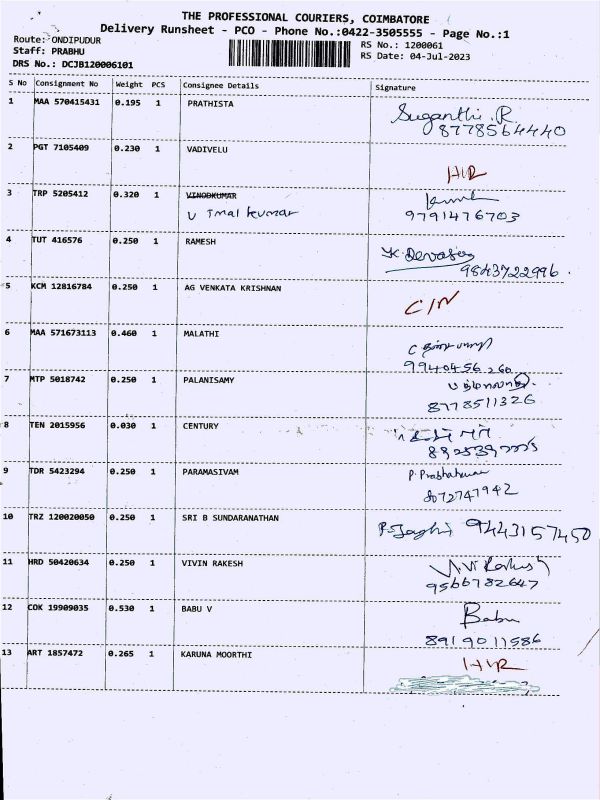 THE PROFESSIONAL COURIERS, COIMBATORE
Delivery Runsheet - PCO - Phone No.:0422-3505555 - Page No.:1
Route: ONDIPUDUR
RS No.: 1200061
Staff: PRABHU
RS Date: 04-Jul-2023
DRS No.: DCJB120006101
S No Consignment No Weight PCS Consignee Details Signature
1 MAA 570415431 0.195 1 PRATHISTA Suganthi.R
8778564440
2 PGT 7105409 0.230 1 VADIVELU
H/R
3 TRP 5205412 0.320 1 VINODKUMAR
V Imal kumar 9791476703
4 TUT 416576 0.250 1 RAMESH
K. Devasis
9843722996.
5 KCM 12816784 0.250 1 AG VENKATA KRISHNAN
C/N
6 MAA 571673113 0.460 1 MALATHI
9940456260
7 MTP 5018742 0.250 1 PALANISAMY
8778511326
8 TEN 2015956 0.030 1 CENTURY
9 TDR 5423294 0.250 1 PARAMASIVAM P. Prabhakaran
8072747942
10 TRZ 120020050 0.250 1 SRI B SUNDARANATHAN
9443157450
11 HRD 50420634 0.250 1 VIVIN RAKESH
9566782647
12 COK 19909035 0.530 1 BABU V Babu
8919011586
13 ART 1857472 0.265 1 KARUNA MOORTHI H/R